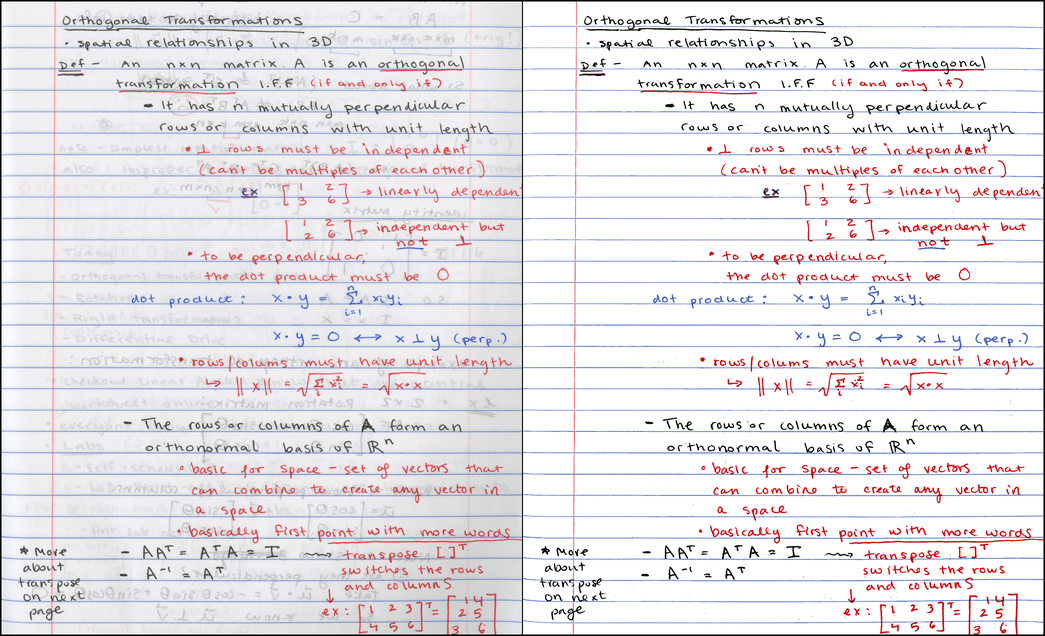 Orthogonal Transformations
• spatial relationships in 3D
Def - An n×n matrix A is an orthogonal
transformation I.F.F (if and only if)
- It has n mutually perpendicular
rows or columns with unit length
• ⊥ rows must be independent
(can't be multiples of each other)
ex [1 2; 3 6] → linearly dependent
[1 2; 2 6] → independent but
not ⊥
• to be perpendicular,
the dot product must be 0
dot product: x • y = Σ_{i=1}^{n} xiyi
x • y = 0 ↔ x ⊥ y (perp.)
• rows/colums must have unit length
↳ ||x|| = √(Σ_i xi²) = √(x•x)
- The rows or columns of A form an
orthonormal basis of ℝⁿ
• basic for space - set of vectors that
can combine to create any vector in
a space
• basically first point with more words
* More
about
transpose
on next
page
- AAᵀ = AᵀA = I ⟿ transpose [ ]ᵀ
- A⁻¹ = Aᵀ
switches the rows
and columns
ex: [1 2 3; 4 5 6]ᵀ = [1 4; 2 5; 3 6]
Orthogonal Transformations
• spatial relationships in 3D
Def - An n×n matrix A is an orthogonal
transformation I.F.F (if and only if)
- It has n mutually perpendicular
rows or columns with unit length
• ⊥ rows must be independent
(can't be multiples of each other)
ex [1 2; 3 6] → linearly dependent
[1 2; 2 6] → independent but
not ⊥
• to be perpendicular,
the dot product must be 0
dot product: x • y = Σ_{i=1}^{n} xiyi
x • y = 0 ↔ x ⊥ y (perp.)
• rows/colums must have unit length
↳ ||x|| = √(Σ_i xi²) = √(x•x)
- The rows or columns of A form an
orthonormal basis of ℝⁿ
• basic for space - set of vectors that
can combine to create any vector in
a space
• basically first point with more words
* More
about
transpose
on next
page
- AAᵀ = AᵀA = I ⟿ transpose [ ]ᵀ
- A⁻¹ = Aᵀ
switches the rows
and columns
ex: [1 2 3; 4 5 6]ᵀ = [1 4; 2 5; 3 6]